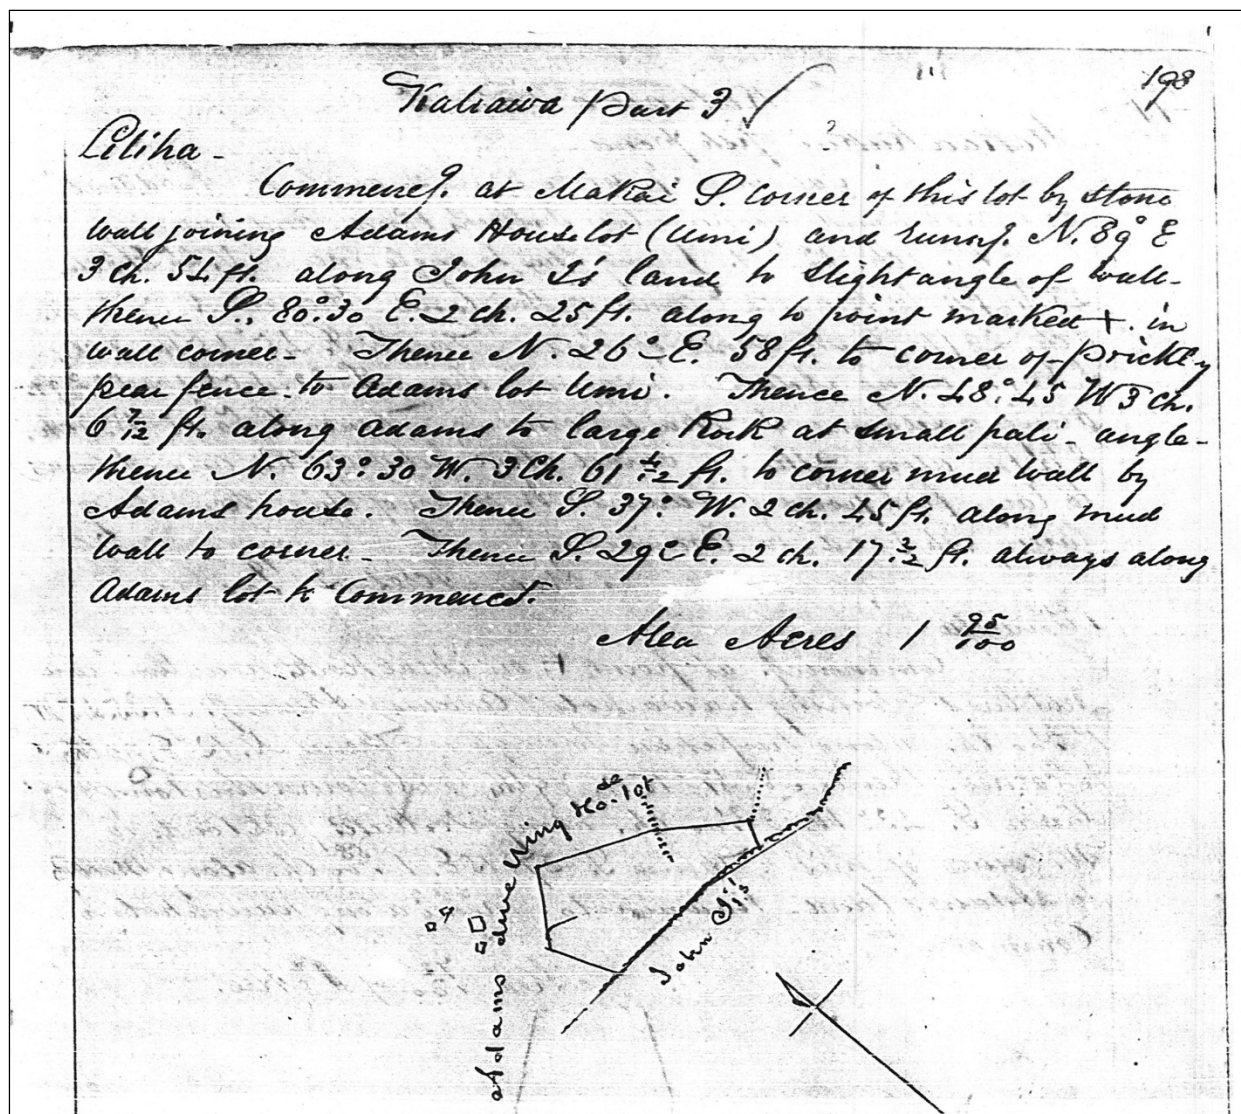 198
Kaliawa Part 3
Liliha -
Commencg. at Makai S. corner of this lot by stone
wall joining Adams House lot (Umi) and runng. N. 89° E
3 ch. 54 ft. along John Ii's land to slight angle of wall -
thence S. 80°:30 E. 2 ch. 25 ft. along to point marked +. in
wall corner - Thence N. 26° E. 58 ft. to corner of prickly
pear fence. to Adams lot Umi. Thence N. 48°:45 W 3 ch.
6 7/12 ft. along Adams to large Rock at small pali - angle -
thence N. 63°:30 W. 3 Ch. 61 ft. to corner mud wall by
Adams house. Thence S. 37° W. 2 ch. 45 ft. along mud
wall to corner - Thence S. 29° E. 2 ch. 17 ft. always along
Adams lot to Commencet.
Area Acres 1 95/100
Adams dwelling Ho. lot
John Ii's